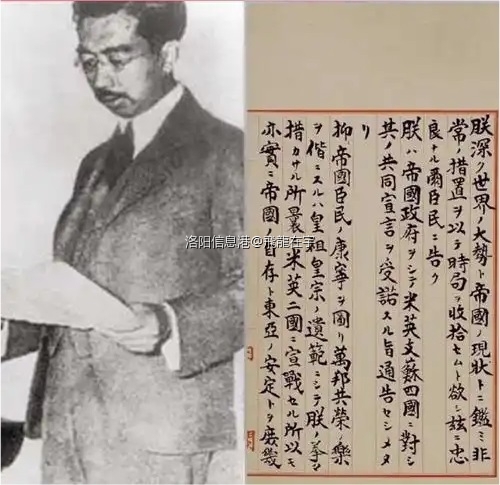 朕深ク世界ノ大勢ト帝國ノ現狀トニ鑑ミ非
常ノ措置ヲ以テ時局ヲ收拾セムト欲シ茲ニ忠
良ナル爾臣民ニ告ク
朕ハ帝國政府ヲシテ米英支蘇四國ニ對シ
其ノ共同宣言ヲ受諾スル旨通告セシメタ
リ
抑帝國臣民ノ康寧ヲ圖リ萬邦共榮ノ樂
ヲ偕ニスルハ皇祖皇宗ノ遺範ニシテ朕ノ拳々
措カサル所曩ニ米英二國ニ宣戰セル所以モ
亦實ニ帝國ノ自存ト東亞ノ安定トヲ庶幾
洛阳信息港@飛龍在宇